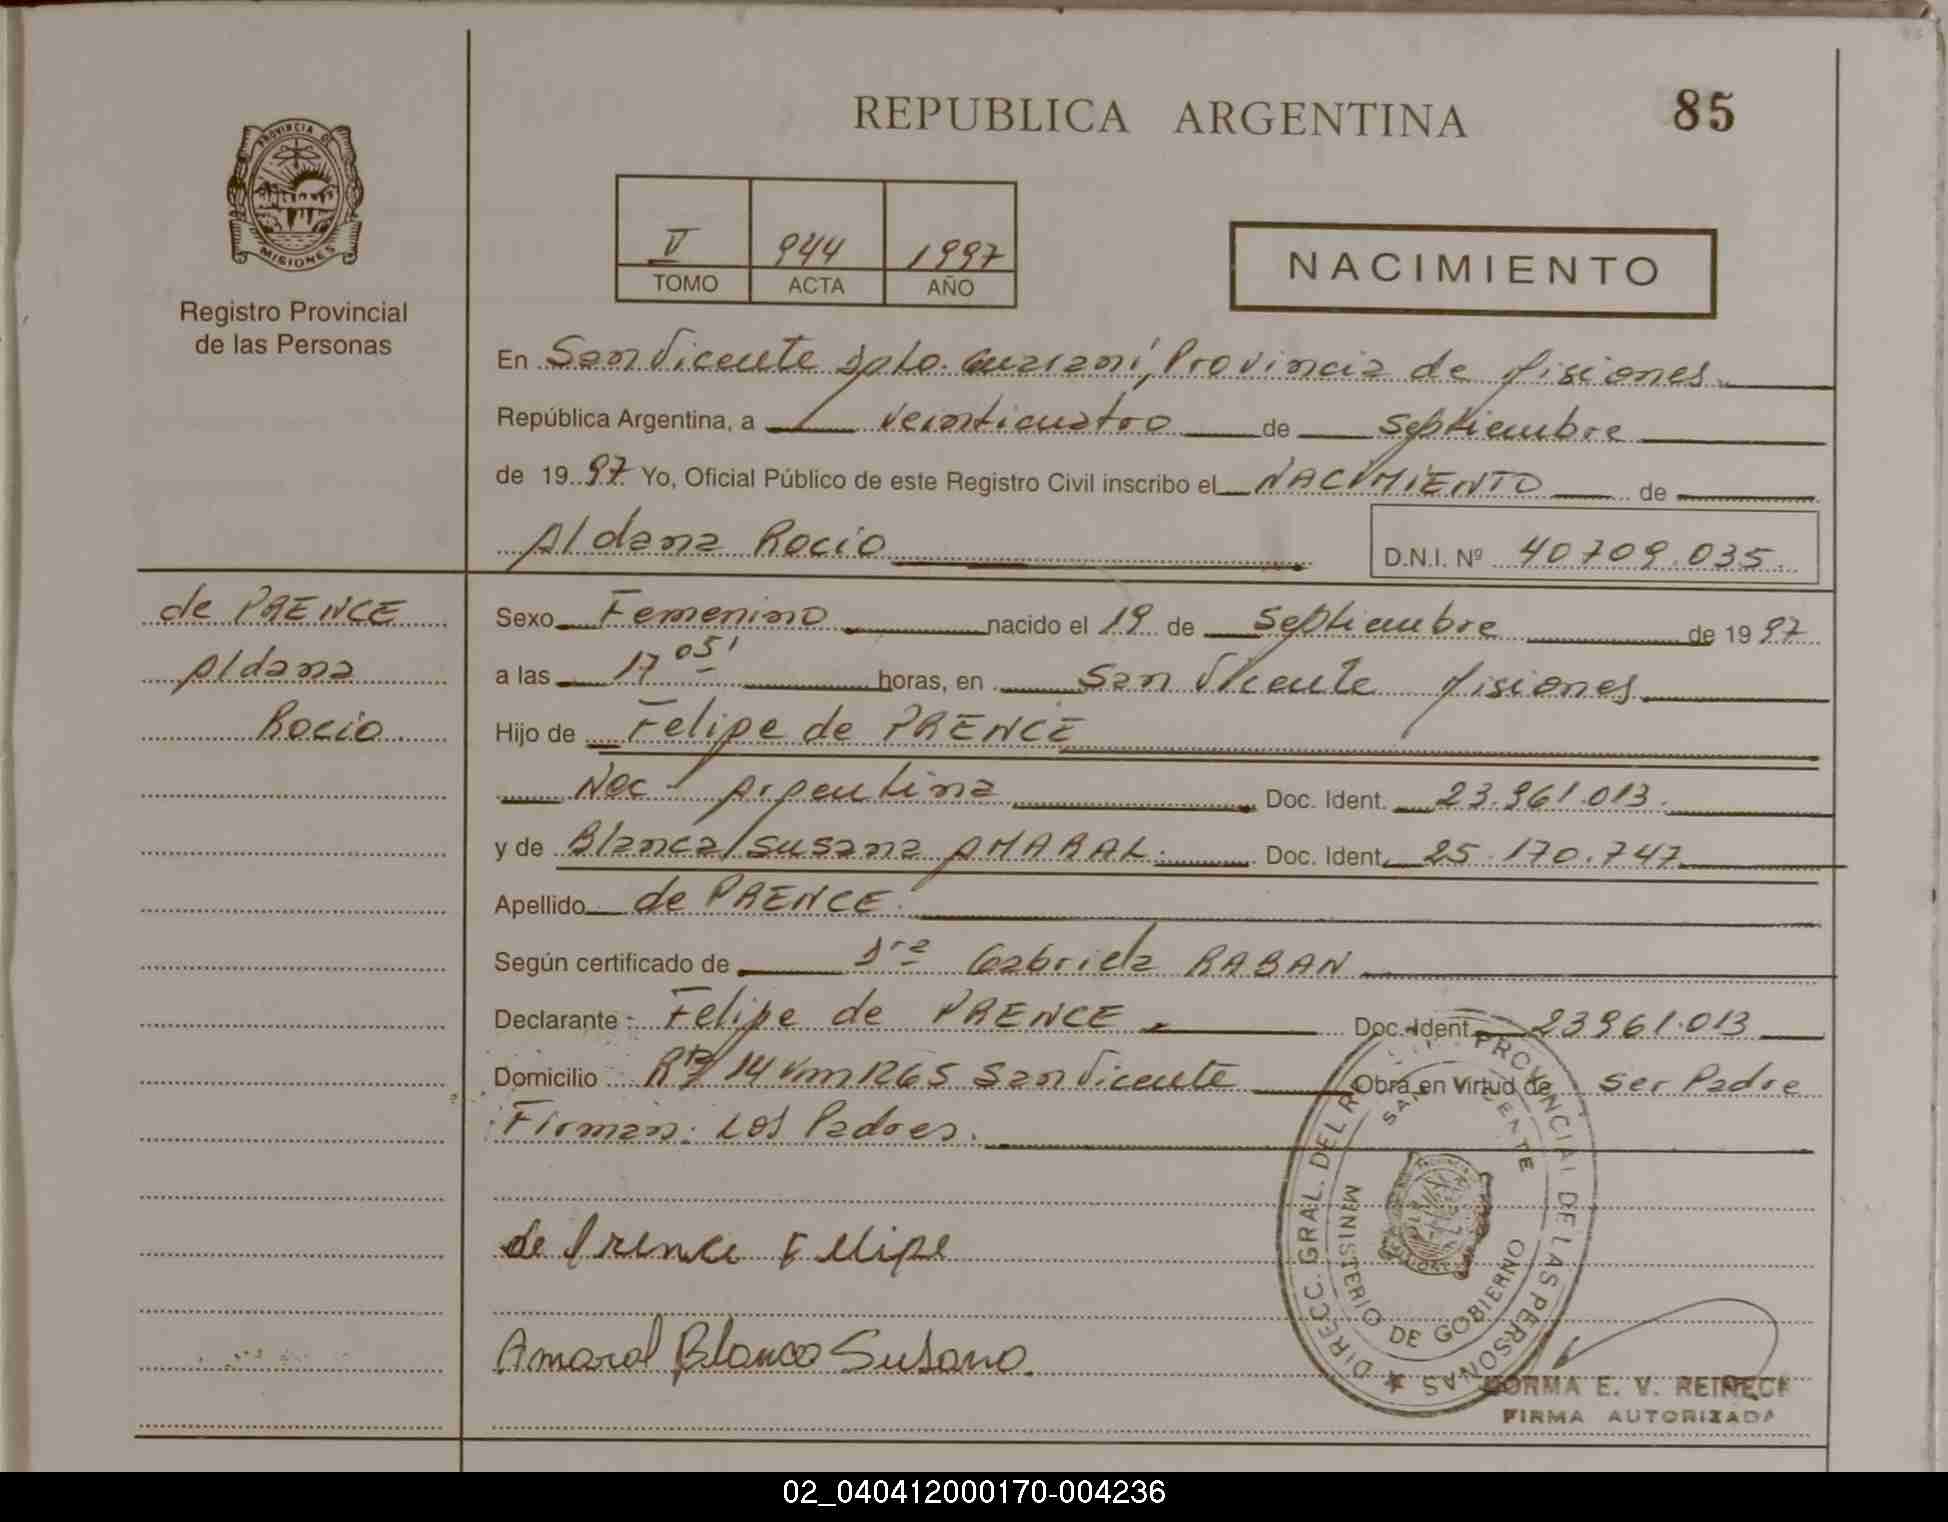 REPUBLICA ARGENTINA
85
PROVINCIA DE
MISIONES
Registro Provincial
de las Personas
V 944 1997
TOMO ACTA AÑO
NACIMIENTO
En San Vicente Dpto. Guaraní, Provincia de Misiones
República Argentina, a veinticuatro de Septiembre
de 1997 Yo, Oficial Público de este Registro Civil inscribo el NACIMIENTO de
Aldana Rocio
D.N.I. Nº 40709.035.
de PRENCE
Aldana
Rocio
Sexo Femenino nacido el 19 de Septiembre de 1997
a las 17 05' horas, en San Vicente Misiones
Hijo de Felipe de PRENCE
Nac Argentina Doc. Ident. 23.961.013.
y de Blanca Susana AMARAL. Doc. Ident. 25.170.747
Apellido de PRENCE.
Según certificado de Dra Gabriela RABAN
Declarante: Felipe de PRENCE Doc. Ident. 23961.013
Domicilio Rta 14 Km 1265 San Vicente Obra en Virtud de ser Padre
Firman: Los Padres.
de Prence Felipe
Amaral Blanca Susana.
DIRECC. GRAL. DEL PROVINCIAL DE LAS PERSONAS
SAN VICENTE
MINISTERIO DE GOBIERNO
NORMA E. V.
FIRMA AUTORIZADA
02_040412000170-004236